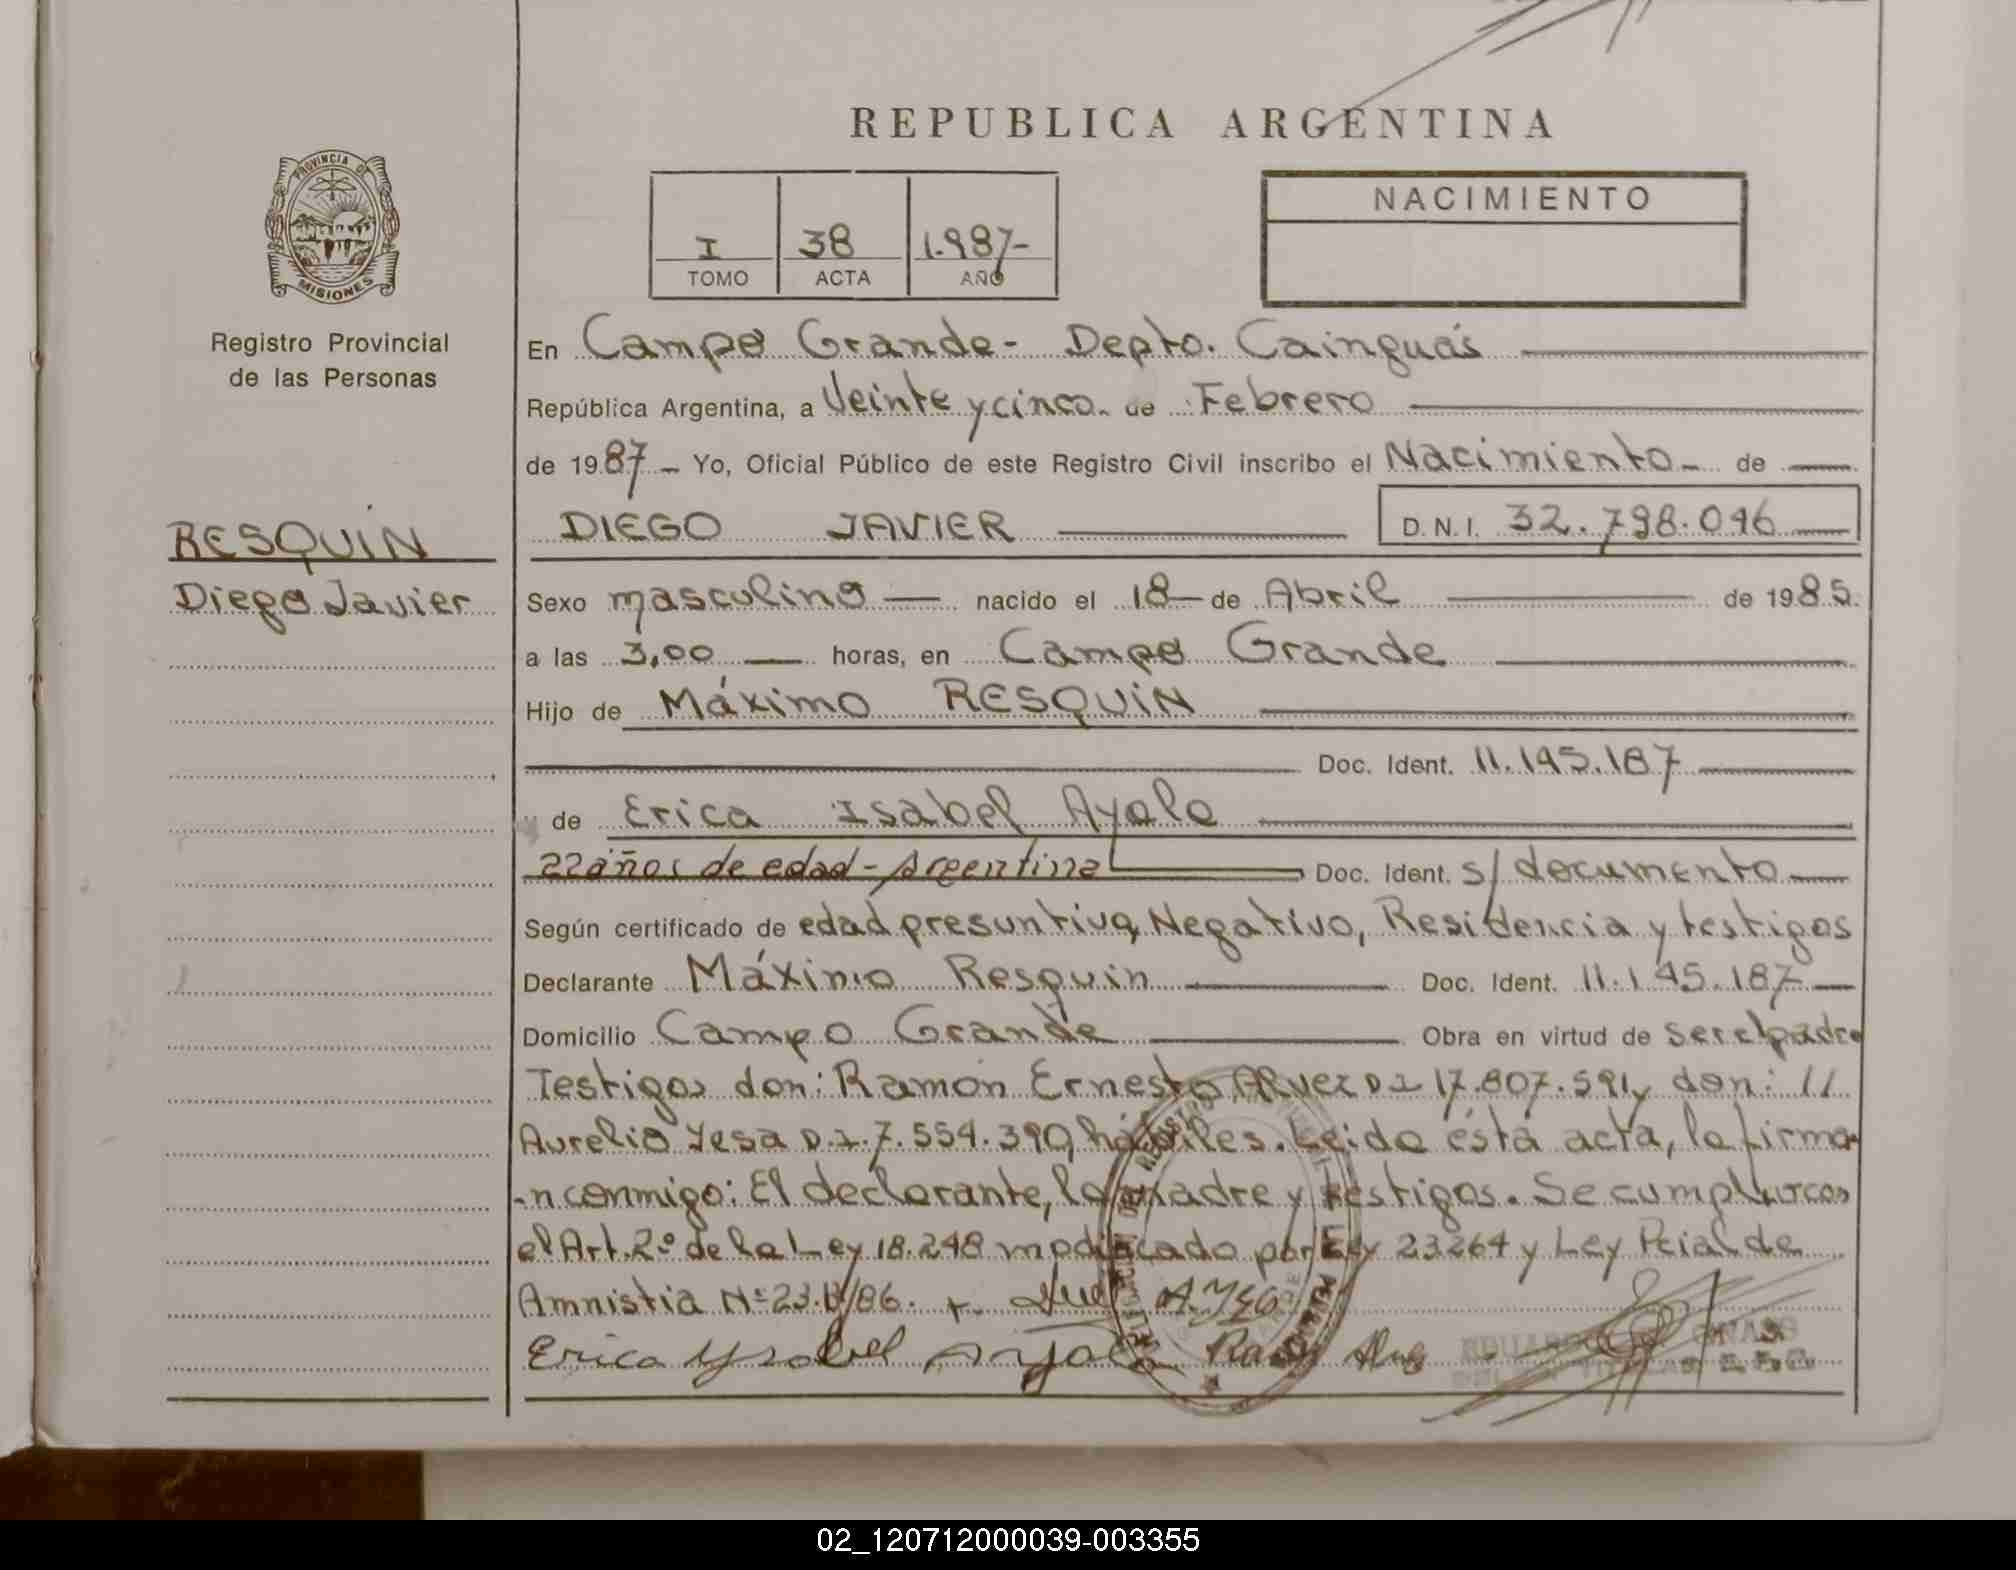 REPUBLICA ARGENTINA
PROVINCIA DE MISIONES
Registro Provincial
de las Personas
I 38 1.987-
TOMO ACTA AÑO
NACIMIENTO
RESQUIN
Diego Javier
En Campo Grande- Depto. Cainguás
República Argentina, a Veinte y cinco. de Febrero
de 1987 - Yo, Oficial Público de este Registro Civil inscribo el Nacimiento - de
DIEGO JAVIER D.N.I. 32.798.096
Sexo masculino nacido el 18 de Abril de 1985.
a las 3,00 horas, en Campo Grande
Hijo de Máximo RESQUIN
Doc. Ident. 11.145.187
y de Erica Isabel Ayala
22 años de edad - Argentina Doc. Ident. s/ documento
Según certificado de edad presuntiva, Negativo, Residencia y testigos
Declarante Máximo Resquin Doc. Ident. 11.145.187
Domicilio Campo Grande Obra en virtud de ser el padre
Testigos don: Ramón Ernesto Alvez D I 17.807.591 y don: //
Aurelio Yesa D.I. 7.554.390, hábiles. Leida ésta acta, la firma-
-n conmigo: El declarante, la madre y testigos. Se cumple
el Art. 2º de la Ley 18.248 modificado por Ley 23264 y Ley Pcial de
Amnistia Nº 23.
Erica Ysabel Ayala
02_120712000039-003355